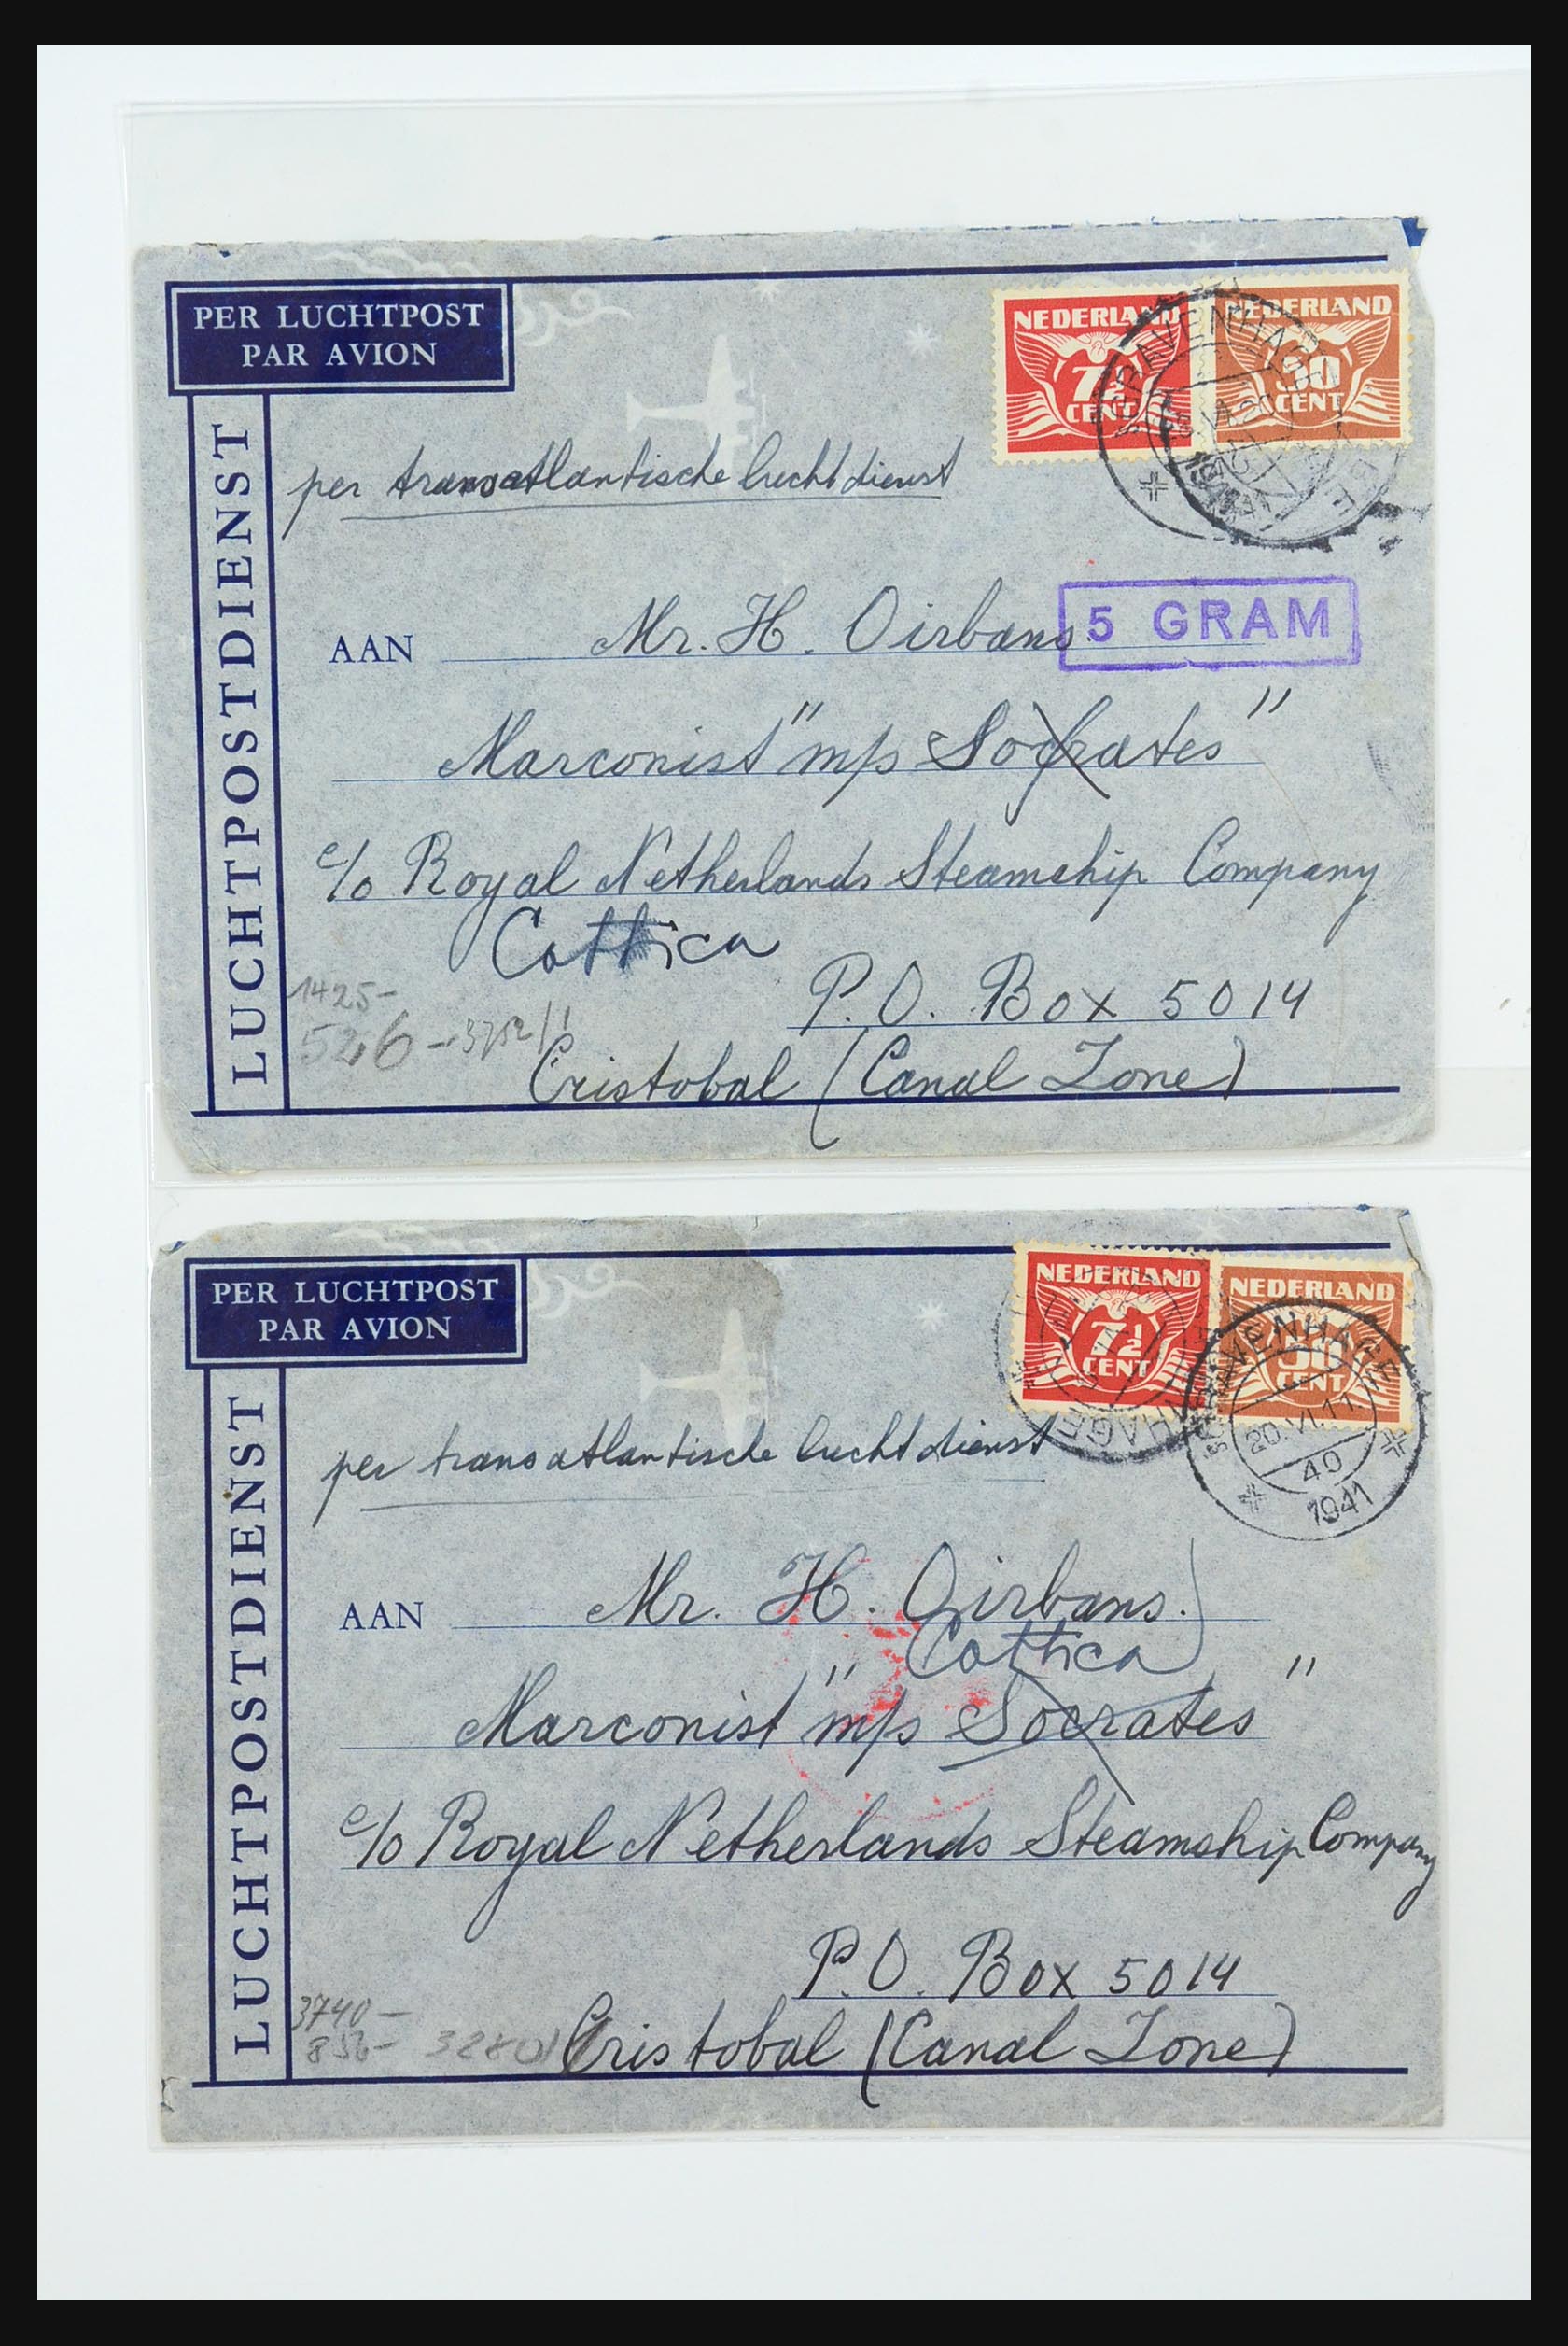 PER LUCHTPOST
PAR AVION
LUCHTPOSTDIENST
NEDERLAND
7½
CENT
NEDERLAND
30
CENT
'SGRAVENHAGE
per transatlantische luchtdienst
5 GRAM
AAN Mr. H. Oirbans.
Marconist "m/s Socrates"
c/o Royal Netherlands Steamship Company
Cottica
P.O. Box 5014
Cristobal (Canal Zone)
1425-
526-
PER LUCHTPOST
PAR AVION
LUCHTPOSTDIENST
NEDERLAND
7½
CENT
NEDERLAND
30
CENT
'SGRAVENHAGE
20.VI.11
40
1941
per transatlantische luchtdienst
AAN Mr. H. Oirbans.
Cottica
Marconist "m/s Socrates"
c/o Royal Netherlands Steamship Company
P.O. Box 5014
Cristobal (Canal Zone)
3740-